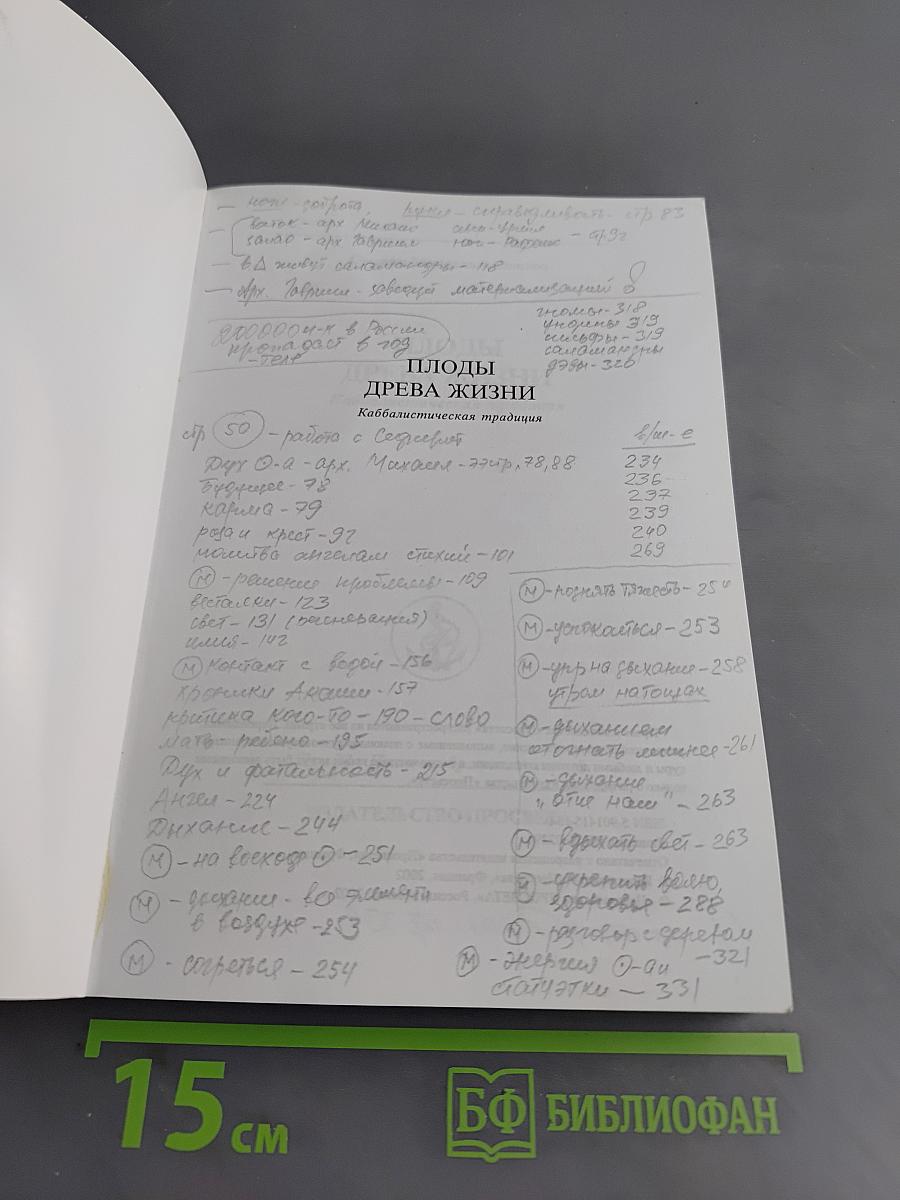 — ноги - доброта, руки - справедливость - стр 83
— восток - арх Михаил север - Уриил
запад - арх Гавриил юг - Рафаил - стр 92
— в Δ живут саламандры - 118
— Арх. Гавриил - заведует материализацией
200000 ч-к в России
пропадает в год
- теле
гномы - 318
ундины 319
сильфы - 319
саламандры
дэвы - 320
ПЛОДЫ
ДРЕВА ЖИЗНИ
Каббалистическая традиция
стр 50 - работа с Сефирот
Дух ⊙-а - арх. Михаил - стр. 78, 88
Будущее - 78
карма - 79
роза и крест - 92
молитва ангелам стихий - 101
М - решение проблемы - 109
весталки - 123
свет - 131
имя - 142
М контакт с водой - 156
хроники Акаши - 157
критика кого-то - 190 - слово
мать ребено - 195
Дух и фатальность - 215
Ангел - 224
Дыхание - 244
М - на восходе ⊙ - 251
М - дыхание - элементы
в воздухе - 253
М - согреться - 254
в/ш-е
234
236
237
239
240
269
М - поднять тяжесть - 25
М - успокоиться - 253
М - упр на дыхание - 258
утром натощак
М - дыханием
отогнать лишнее - 261
М - дыхание
"отче наш" - 263
М - вдыхать свет - 263
М - укрепить волю,
здоровье - 288
М - разговор с деревом
- 321
М - энергия ⊙-а и
статуэтки - 331
15 см
БФ БИБЛИОФАН